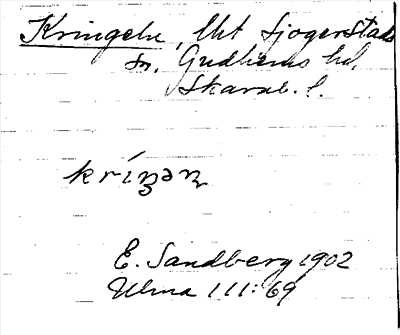 Kringeln, lht Sjogerstads
sn, Gudhems hd,
Skarab. l.
kríŋən
E. Sandberg 1902
Ulma 111:69